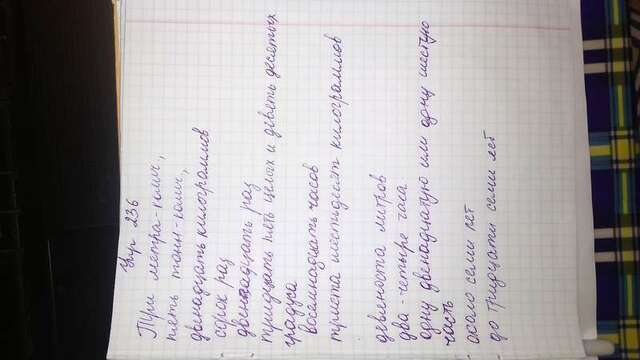 Упр 236
Три метра-колич,
пять тонн-колич,
двенадцать килограммов
сорок раз
двенадцать раз
тридцать пять целых и девять десятых
градуса
восемнадцать часов
триста шестьдесят килограммов
девяноста литров
два-четыре часа
одну двенадцатую или одну шестую
часть
около семи лет
до тридцати семи лет